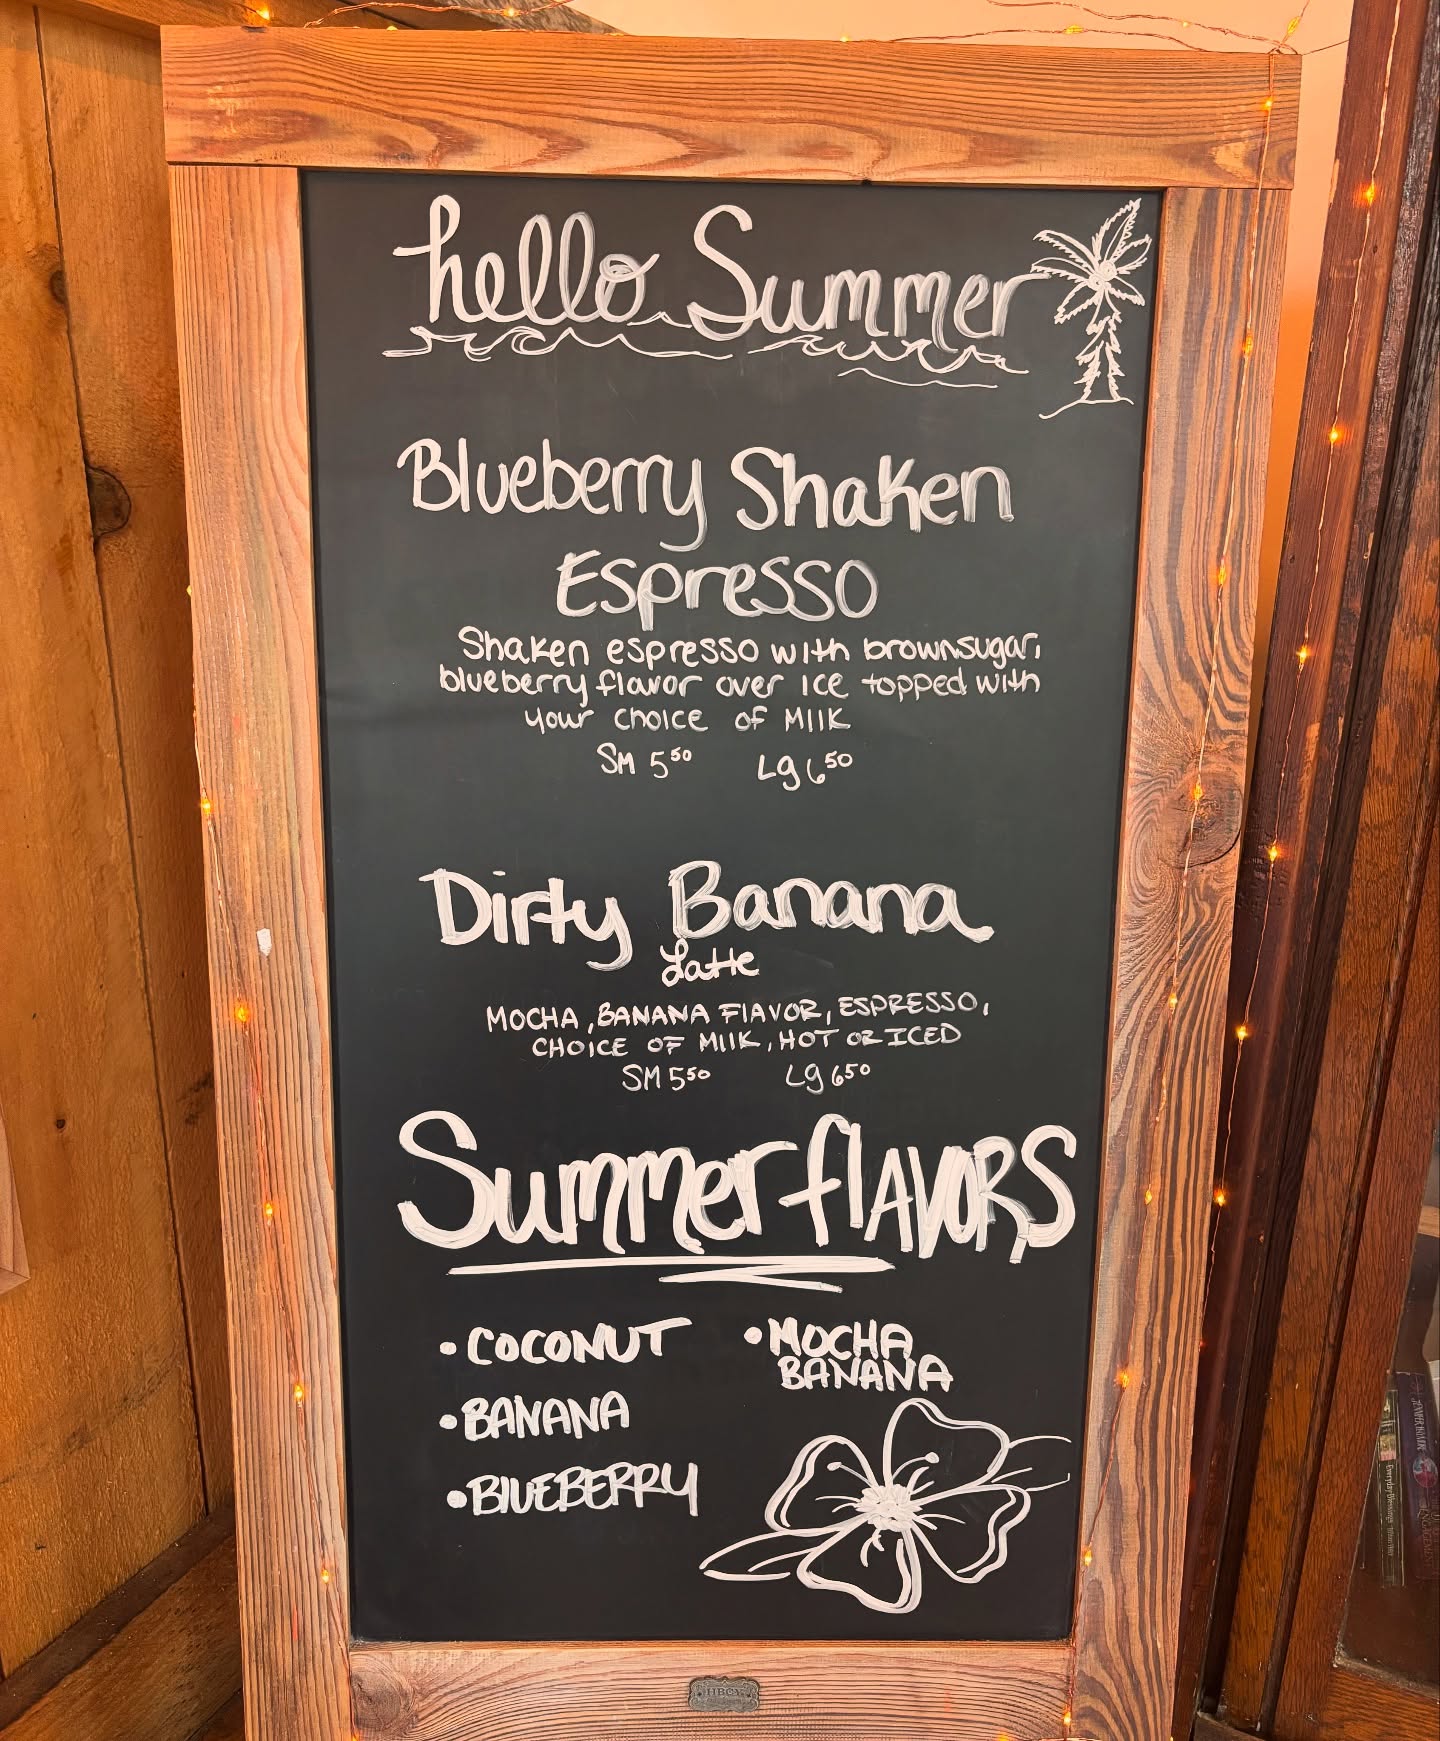 hello Summer
Blueberry Shaken
Espresso
Shaken espresso with brown sugar,
blueberry flavor over ice topped with
your choice of Milk
SM 5⁵⁰ Lg 6⁵⁰
Dirty Banana
Latte
MOCHA, BANANA FlAVOR, ESPRESSO,
CHOICE OF MIlK, HOT OR ICED
SM 5⁵⁰ Lg 6⁵⁰
Summer flAVORS
• COCONUT
• BANANA
• BlUEBERRY
• MOCHA
BANANA
HBCY
Everyday Blessings